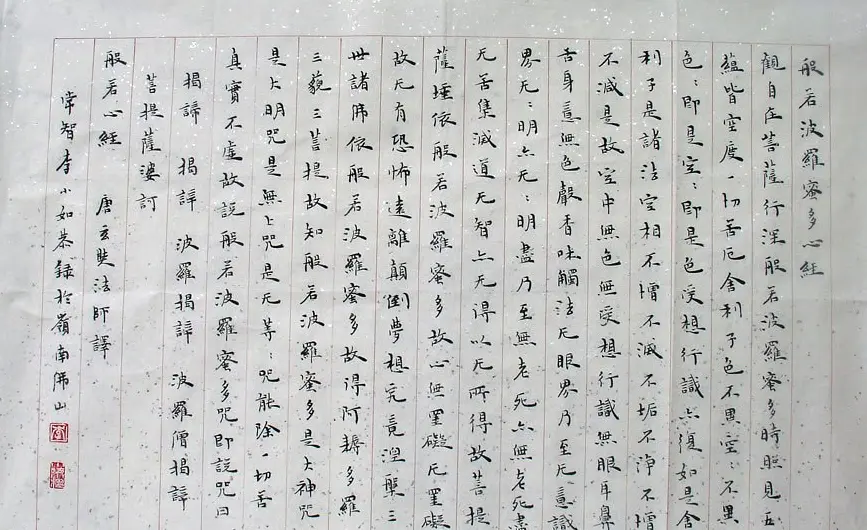 般若波羅蜜多心經
觀自在菩薩行深般若波羅蜜多時照見五
蘊皆空度一切苦厄舍利子色不異空:不異
色:即是空:即是色受想行識亦復如是舍
利子是諸法空相不憎不滅不垢不淨不憎
不減是故空中無色無受想行識無眼耳鼻
舌身意無色聲香味觸法无眼界乃至无意識
界无:明亦无:明盡乃至無老死亦無老死盡
无苦集滅道无智亦无得以无所得故菩提
薩埵依般若波羅蜜多故心無罣礙无罣礙
故无有恐怖遠離顛倒夢想究竟涅槃三
世諸佛依般若波羅蜜多故得阿耨多羅
三藐三菩提故知般若波羅蜜多是大神咒
是大明咒是無上咒是无等:咒能除一切苦
真實不虛故說般若波羅蜜多咒即說咒曰
揭諦 揭諦 波羅揭諦 波羅僧揭諦
菩提薩婆訶
般若心經 唐玄奘法師譯
常智李小如恭録於嶺南佛山